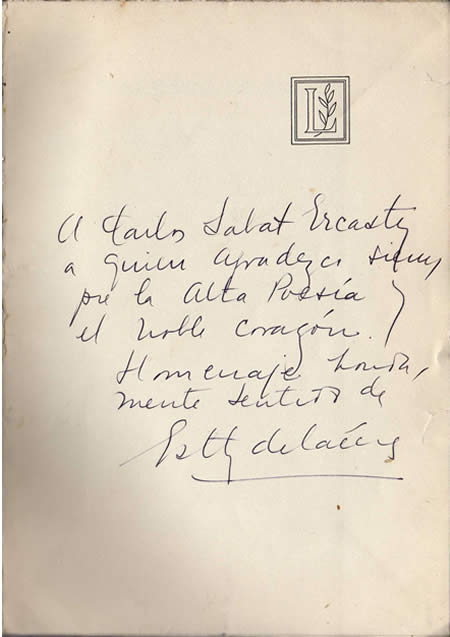 L
A Carlos Sabat Ercasty
a quien agradezco siem
pre la Alta Poesía y
el noble corazón.
Homenaje honda,
mente sentido de
Esther de Cáceres